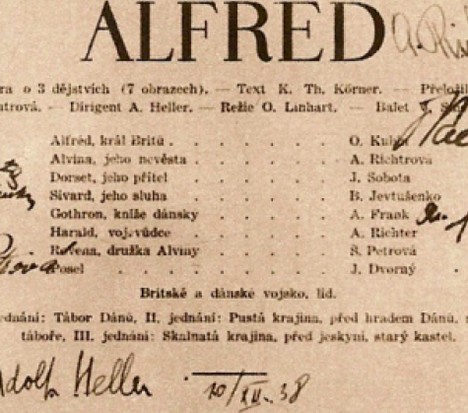 ALFRED
ra o 3 dějstvích (7 obrazech). — Text K. Th. Körner. — Přeložil
htrová. — Dirigent A. Heller. — Režie O. Linhart. — Balet
Alfréd, král Britů . . . . . . O. Kubín
Alvina, jeho nevěsta . . . . . . A. Richtrová
Dorset, jeho přítel . . . . . . J. Sobota
Sivard, jeho sluha . . . . . . B. Jevtušenko
Gothron, kníže dánský . . . . . . A. Frank
Harald, vojevůdce . . . . . . A. Richter
Rovena, družka Alviny . . . . . . S. Petrová
Posel . . . . . . J. Dvorný
Britské a dánské vojsko, lid.
ednání: Tábor Dánů, II. jednání: Pustá krajina, před hradem Dánů,
táboře, III. jednání: Skalnatá krajina, před jeskyní, starý kastel.
Adolf Heller 20/XII. 38